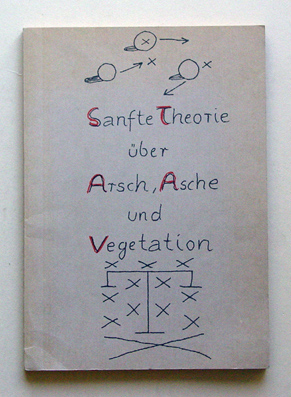 Sanfte Theorie
über
Arsch, Asche
und
Vegetation